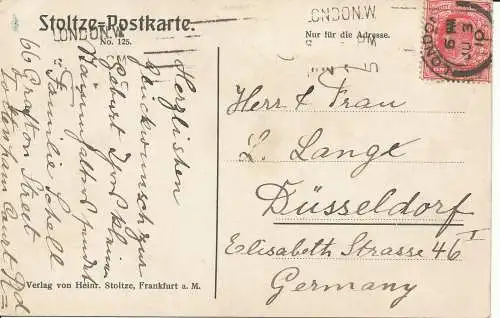 Stoltze-Postkarte.
No. 125.
Nur für die Adresse.
LONDON.W.
LONDON.W
LONDON
6 PM
10
Herzlichen
Glückwunsch zur
Geburt Ihres kleinen
Familie Schell
66 Grafton Street
Tottenham Court Rd
Herr & Frau
L. Lange
Düsseldorf
Elisabeth Strasse 46 I
Germany
Verlag von Heinr. Stoltze, Frankfurt a. M.